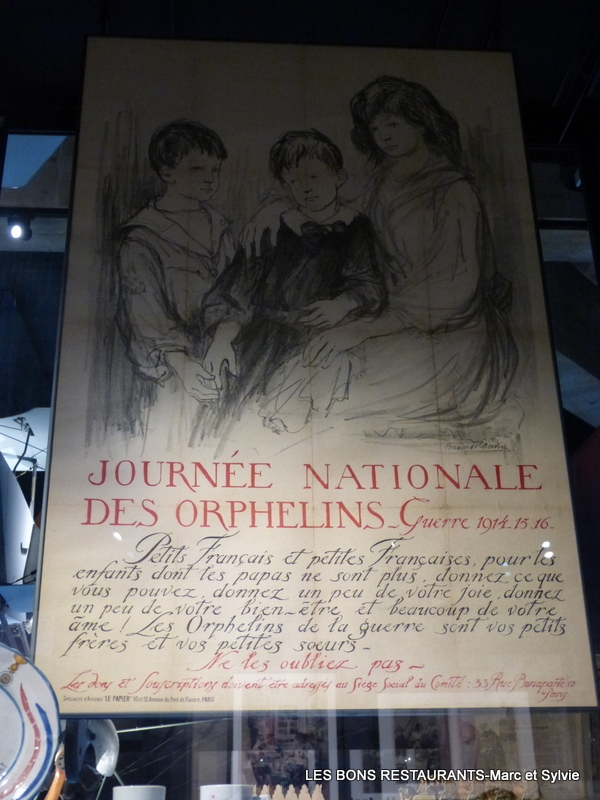 JOURNÉE NATIONALE
DES ORPHELINS - Guerre 1914.15.16.
Petits Français et petites Françaises, pour les
enfants dont les papas ne sont plus, donnez ce que
vous pouvez, donnez un peu de votre joie, donnez
un peu de votre bien-être et beaucoup de votre
âme ! Les Orphelins de la guerre sont vos petits
frères et vos petites sœurs -
Ne les oubliez pas -
Les dons et Souscriptions doivent être adressés au Siège Social du Comité : 33 Rue Bonaparte
Paris.
"LE PAPIER" 10 et 12, Avenue du Pont de Flandre, PARIS
LES BONS RESTAURANTS-Marc et Sylvie